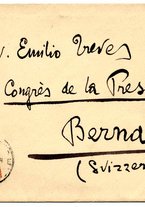 . Emilio Treves
Congrès de la Pres
Berna
(Svizzer